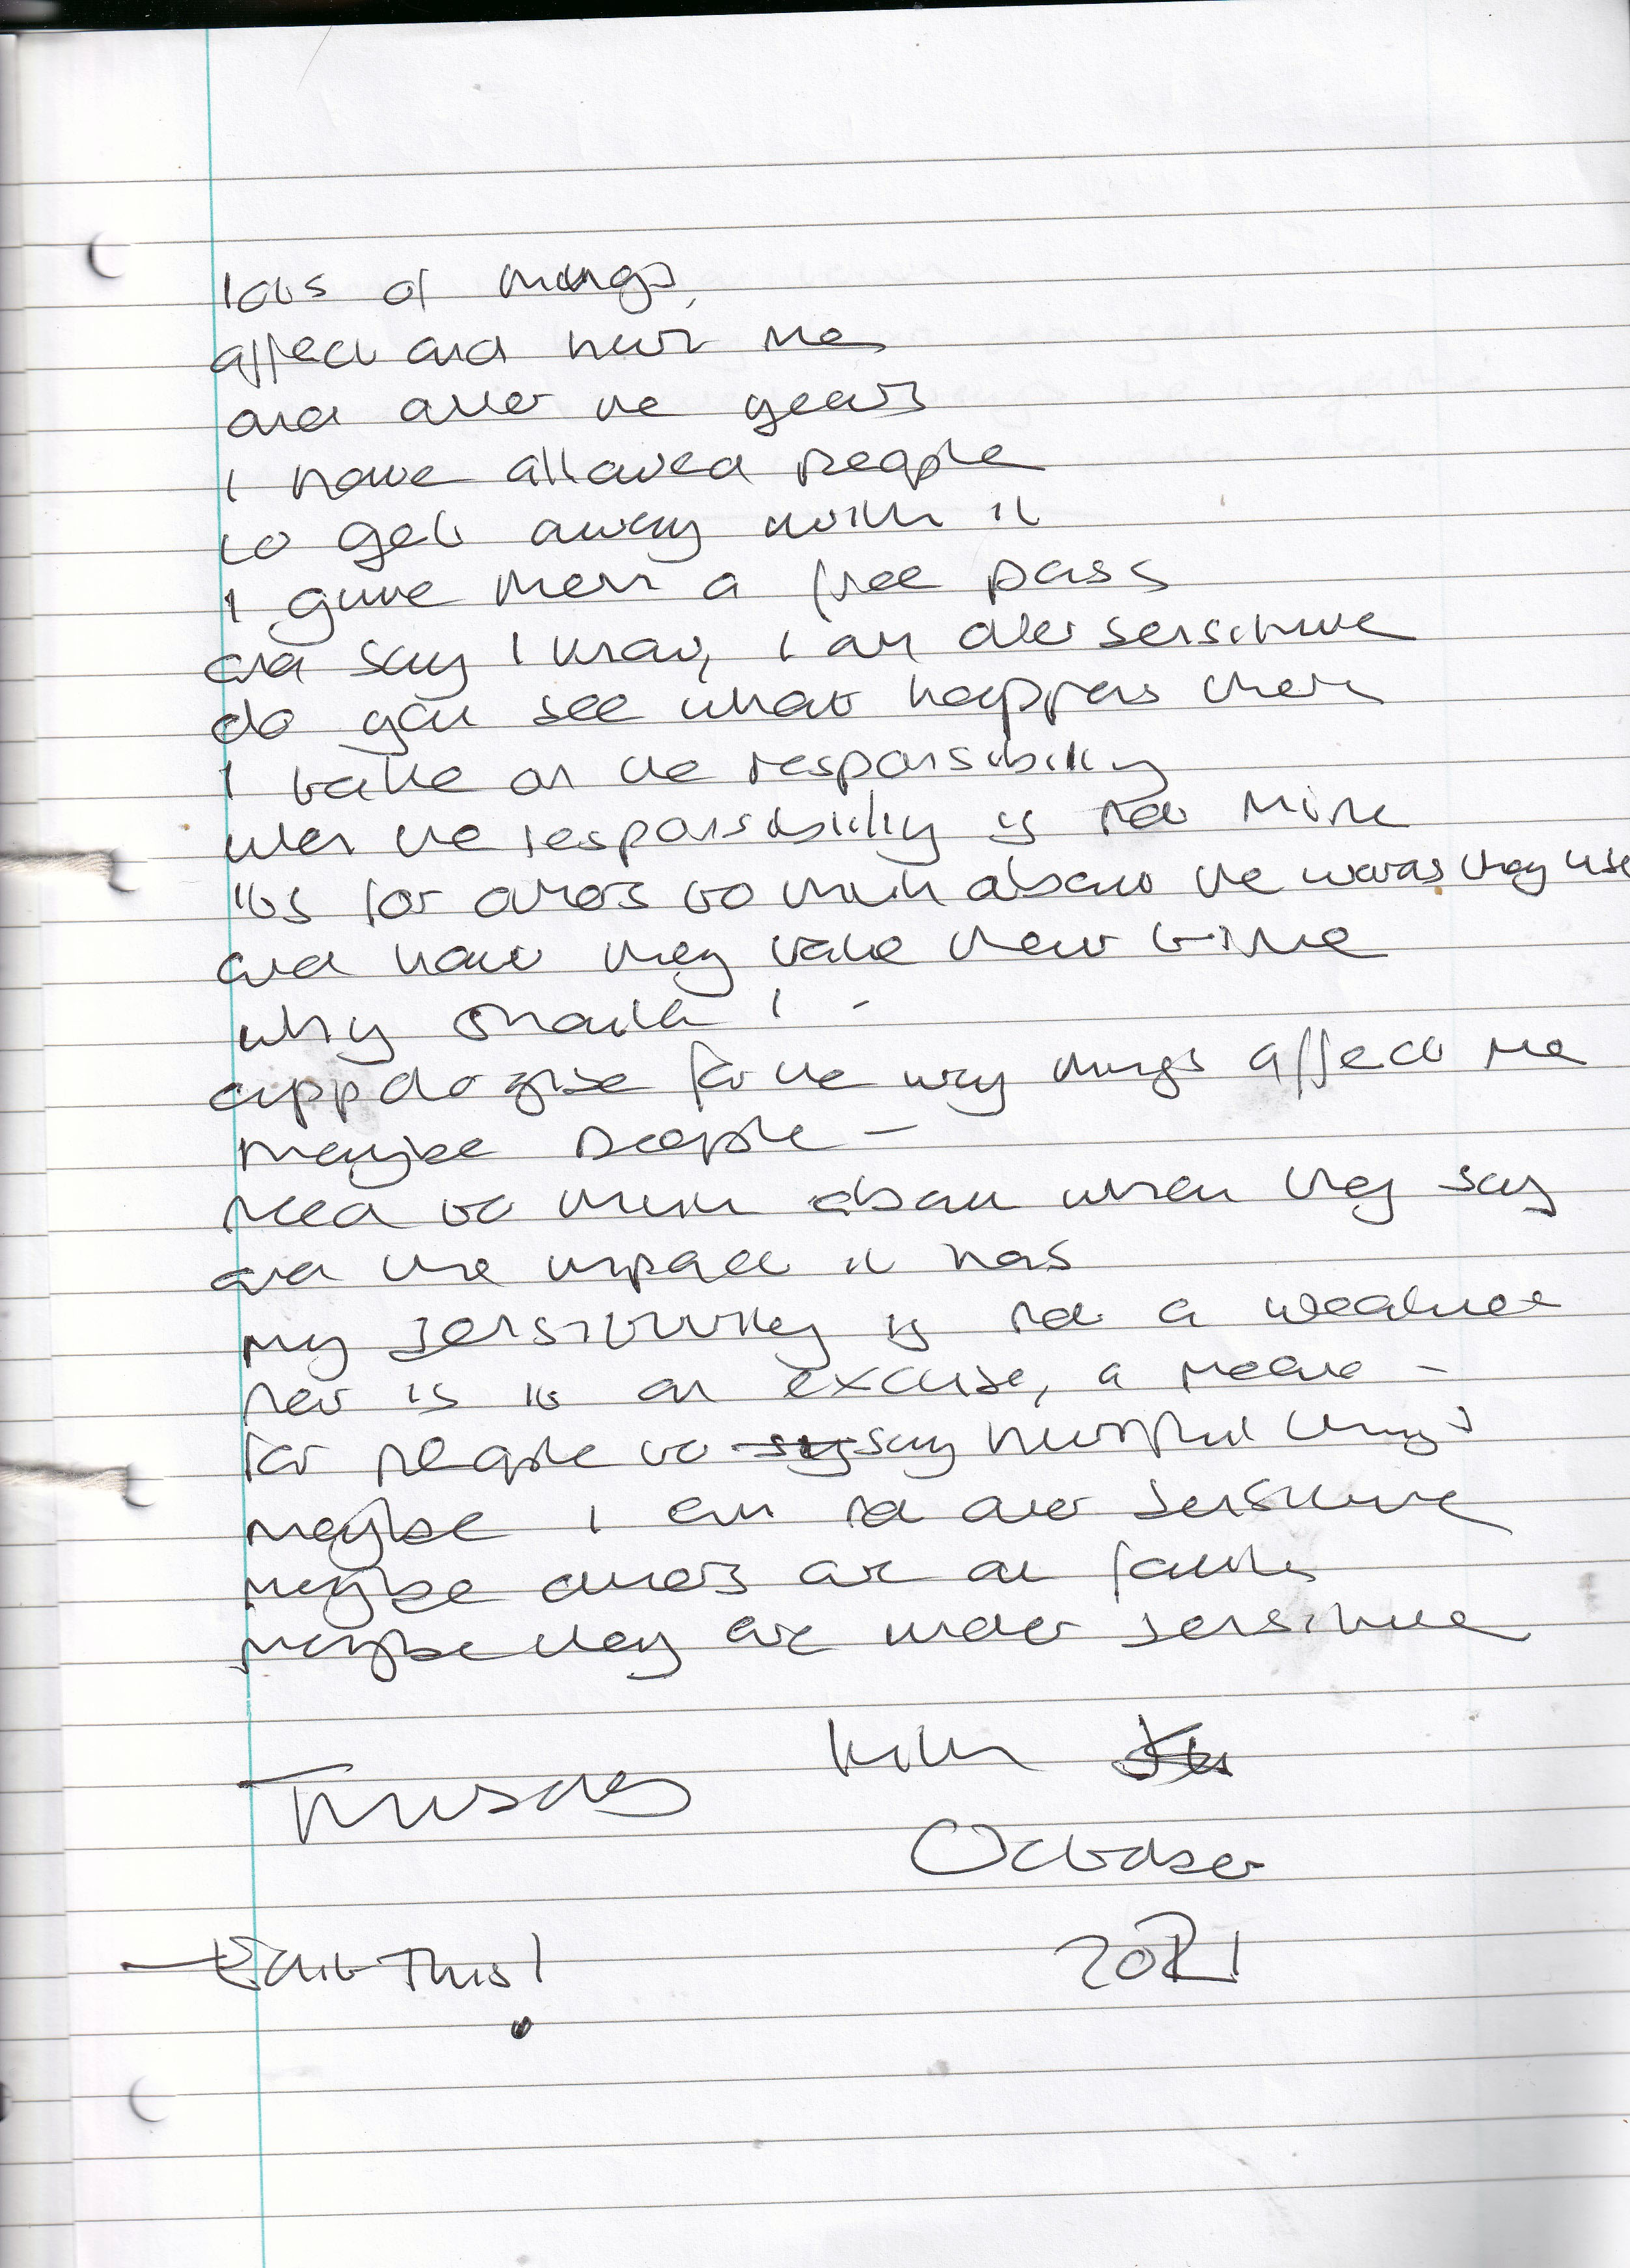 lots of things,
affect and hurt me
and over the years
I have allowed people
to get away with it
I give them a free pass
and say I know, I am over sensitive
do you see what happens then
I take on the responsibility
when the responsibility is not mine
it's for others to think about the words they use
and how they take their time
why should I -
appologise for the way things affect me
maybe people -
need to think about when they say
and the impact it has
my sensitivity is not a weakness
nor is it an excuse, a means -
for people to say hurtful things
maybe I am not over sensitive
maybe others are at fault
maybe they are under sensitive
Thursday
October
2021
Edit This!